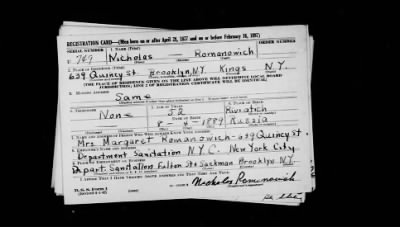 REGISTRATION CARD—(Men born on or after April 28, 1877 and on or before February 16, 1897)
SERIAL NUMBER 1. NAME (Print) ORDER NUMBER
U 749 Nicholas — Romanowich
2. PLACE OF RESIDENCE (Print)
639 Quincy st. Brooklyn, N.Y. Kings N.Y.
[THE PLACE OF RESIDENCE GIVEN ON THE LINE ABOVE WILL DETERMINE LOCAL BOARD
JURISDICTION; LINE 2 OF REGISTRATION CERTIFICATE WILL BE IDENTICAL]
3. MAILING ADDRESS
Same
4. TELEPHONE
None 52
DATE OF BIRTH
8 - 4 - 1889 Russia
Mrs. Margaret Romanowich - 639 Quincy st.
8. EMPLOYER'S NAME AND ADDRESS
Department Sanitation N.Y.C. New York City
9. PLACE OF EMPLOYMENT OR BUSINESS
Depart. Sanitation Fulton St & Sackman Brooklyn N.Y.
I AFFIRM THAT I HAVE VERIFIED ABOVE ANSWERS AND THAT THEY ARE TRUE.
D. S. S. Form 1
Nicholas Romanowich